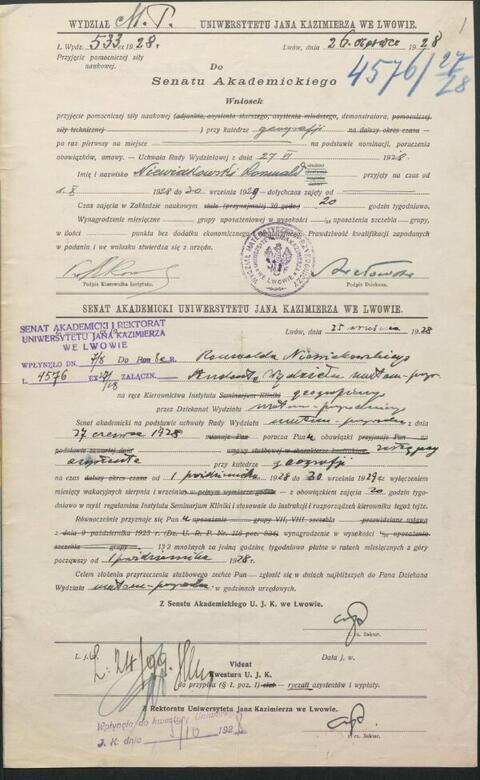 WYDZIAŁ M. P. UNIWERSYTETU JANA KAZIMIERZA WE LWOWIE. 1
Ł. Wydz. 533 ex 1928. Lwów, dnia 26 1928
Przyjęcie pomocniczej siły
naukowej. 4576/27/28
Do
Senatu Akademickiego
Wniosek
przyjęcie pomocniczej siły naukowej (adjunkta, asystenta starszego, asystenta młodszego, demonstratora, pomocniczej
siły technicznej) przy katedrze geografji na dalszy okres czasu —
po raz pierwszy na miejsce na podstawie nominacji, poruczenia
obowiązków, umowy. — Uchwała Rady Wydziałowej z dnia 27 VI 1928.
Imię i nazwisko Romuald przyjęty na czas od
1. X 1928 do 30 września 1929 — dotychczas zajęty od
Czas zajęcia w Zakładzie naukowym stale (przynajmniej 30 godz.) 20 godzin tygodniowo.
Wynagrodzenie miesięczne grupy uposażeniowej w wysokości uposażenia szczebla grupy,
w ilości punktów bez dodatku ekonomicznego. Prawdziwość kwalifikacji zapodanych
w podaniu i we wniosku stwierdza się z urzędu.
Podpis Kierownika Instytutu. Podpis Dziekana.
SENAT AKADEMICKI UNIWERSYTETU JANA KAZIMIERZA WE LWOWIE.
Lwów, dnia 25 września 1928
SENAT AKADEMICKI I REKTORAT
UNIWERSYTETU JANA KAZIMIERZA
WE LWOWIE
WPŁYNĘŁO DN. 7/8 Do R. Romualda
L. 4576 EX 27/28 ZAŁĄCZN. Studenta Wydziału matem-przyr.
na ręce Kierownictwa Instytutu Seminarjum Kliniki geograficznego
przez Dziekanat Wydziału matem-przyrodniczy
Senat akademicki na podstawie uchwały Rady Wydziału matem-przyrodn. z dnia
27 czerwca 1928 mianuje Pan porucza Panu obowiązki przyjmuje Pan w
podstawie zawartej dnia umowy służbowej w charakterze zastępcy
asystenta przy katedrze geografji
na czas dalszy okres czasu — od 1 października 1928 do 30 września 1929 z wyłączeniem
miesięcy wakacyjnych sierpnia i września w pełnym wymiarze godzin — z obowiązkiem zajęcia 20 godzin tygodniowo
w myśl regulaminu Instytutu Seminarjum Kliniki i stosownie do instrukcji i rozporządzeń kierownika tegoż tejże.
Równocześnie przyznaje się Panu uposażenie grupy VII, VIII. szczebla przewidziane ustawą
z dnia 9 października 1923 r. (Dz. U. R. P. Nr. 116 poz. 924) wynagrodzenie w wysokości uposażenia
szczebla grupy 132 mnożnych za jedną godzinę tygodniowo płatne w ratach miesięcznych z góry
począwszy od 1 października 1928 r.
Celem złożenia przyrzeczenia służbowego zechce Pan zgłosić się w dniach najbliższych do Pana Dziekana
Wydziału matem-przyrodn. w godzinach urzędowych.
Z Senatu Akademickiego U. J. K. we Lwowie.
m. p. Sekter.
Data j. w.
Videat
Kwestura U. J. K.
do przypisu (§ 1. poz. 1) etat — ryczałt asystentów i wypłaty.
Z Rektoratu Uniwersytetu Jana Kazimierza we Lwowie
Wpłynęło do kwestury Uniwersyt.
J. K. dnia 5/10 1928 m. p. Sekter.